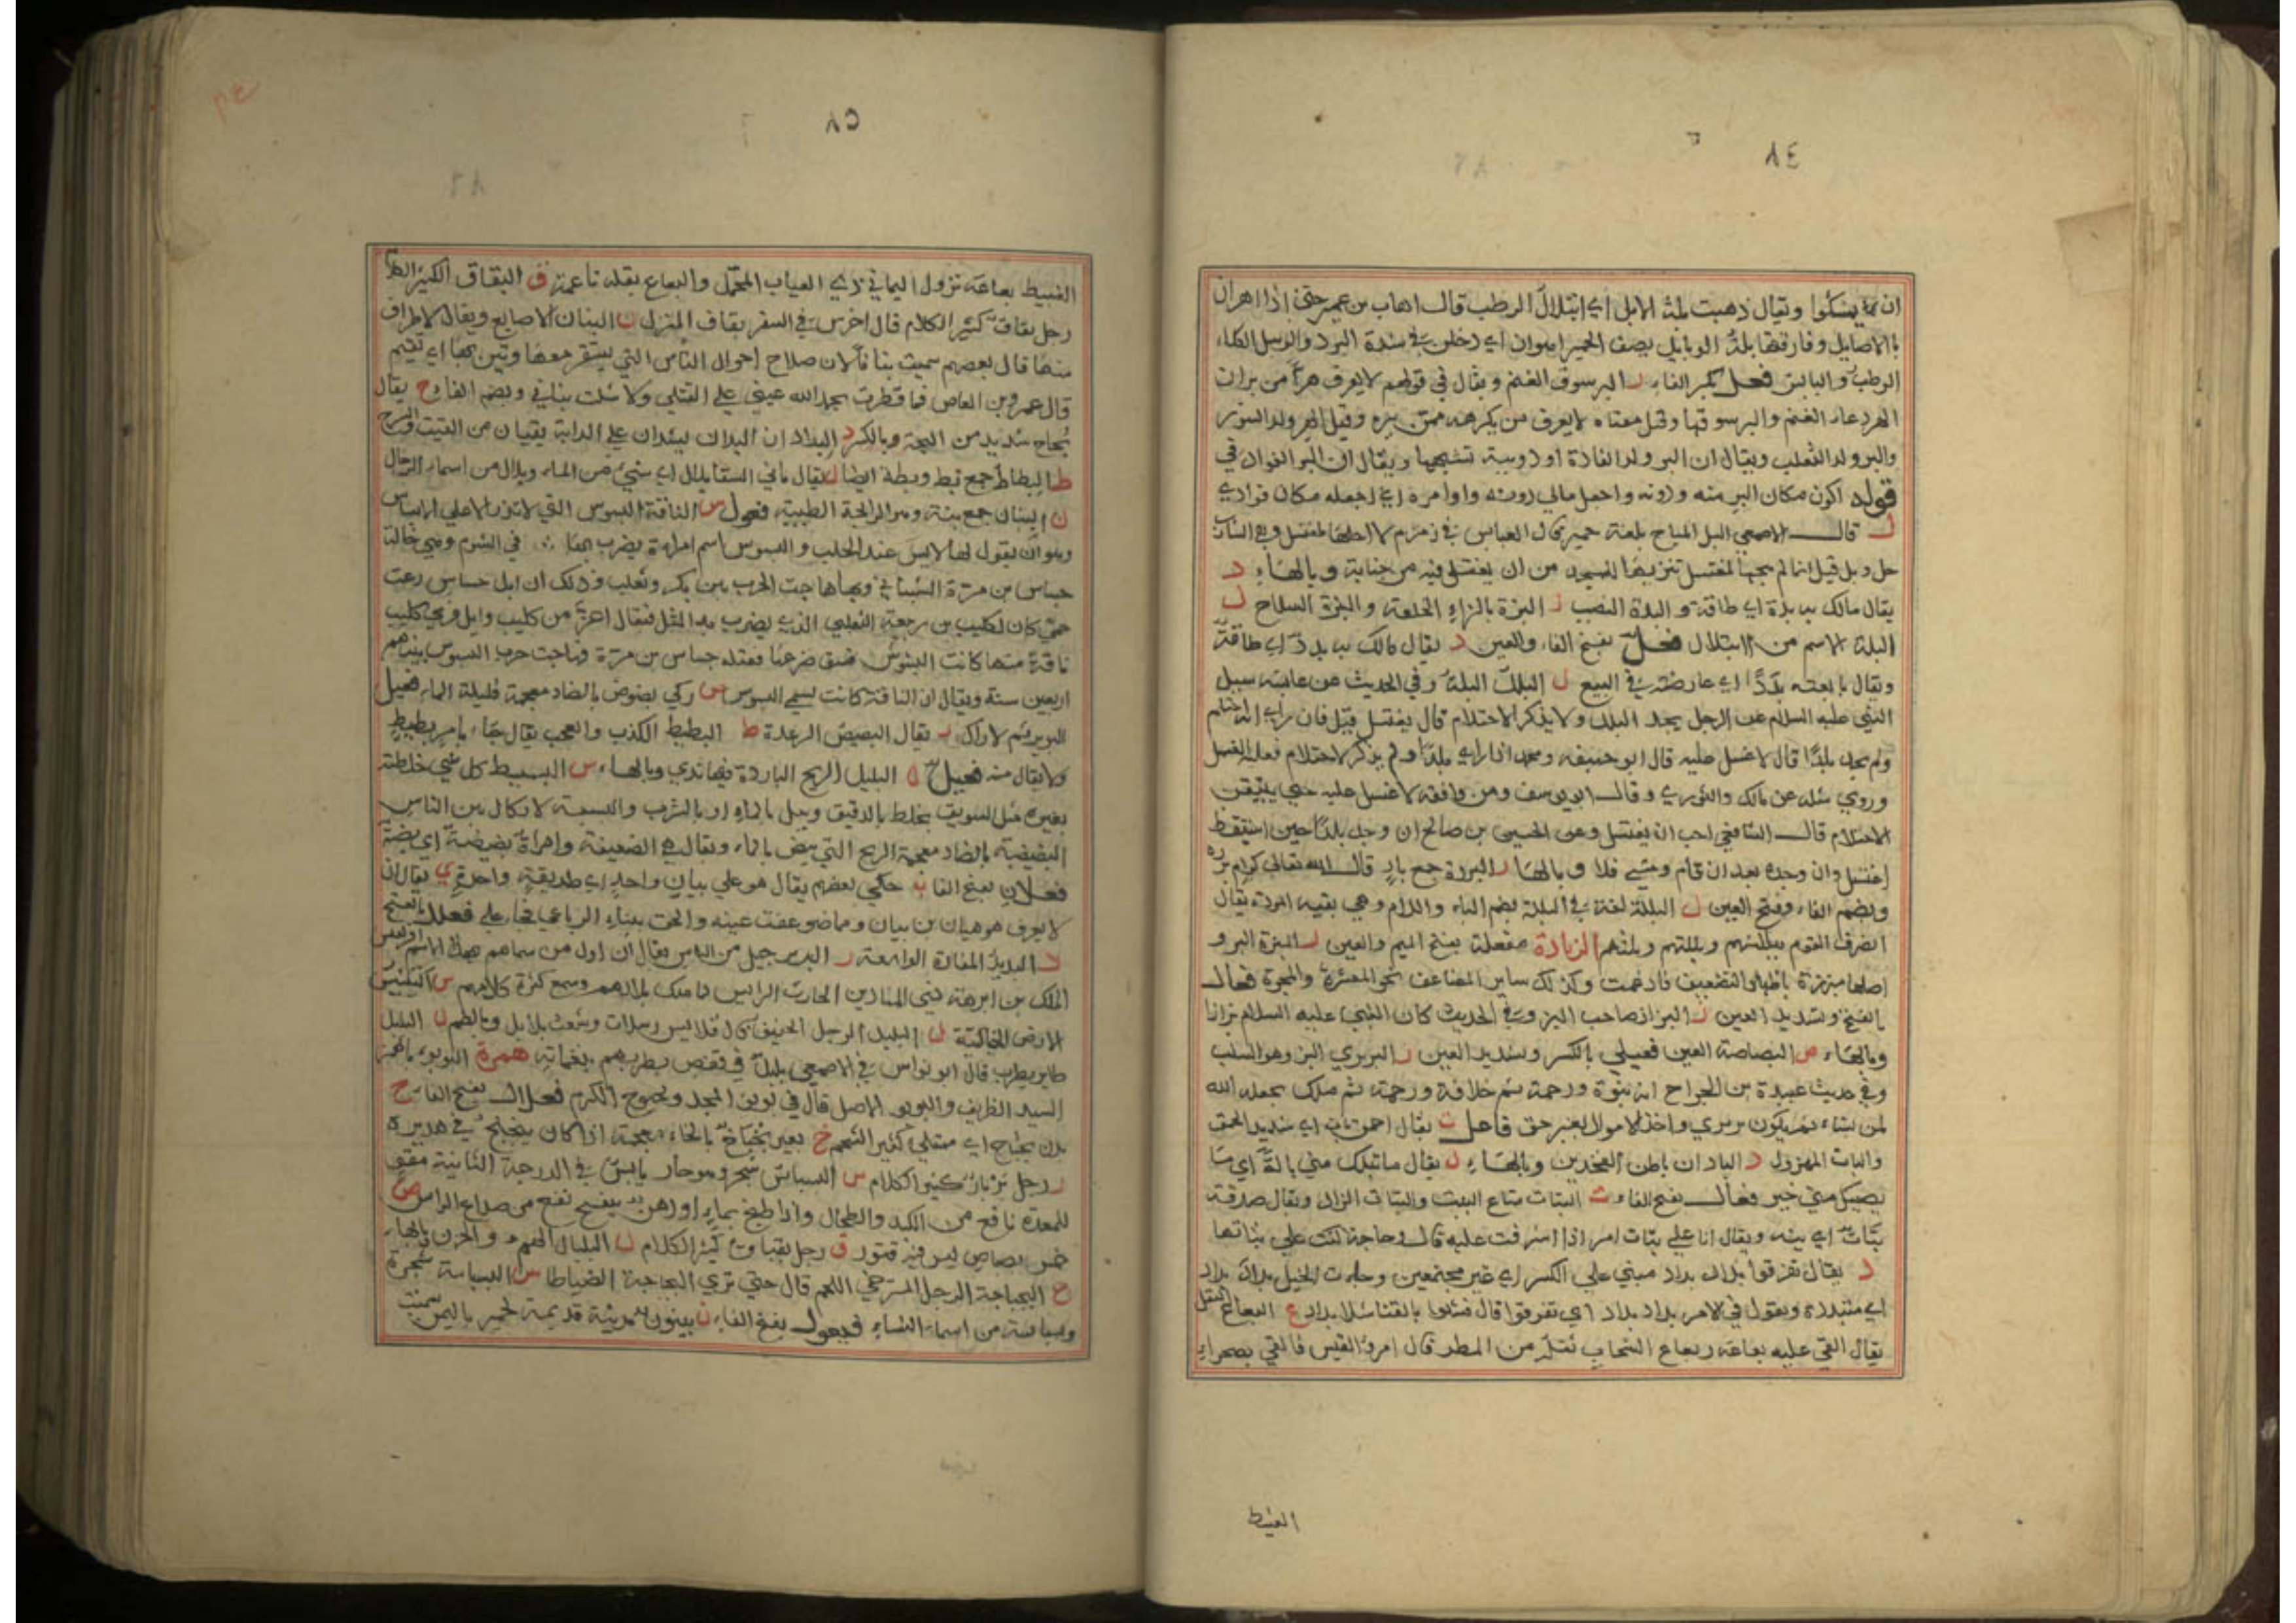 ٨٤
ان يشكوا ويقال ذهبت بلة الابل اي ابتلال الرطب قال اهاب بن عمير حتى اذا اهرأن
بالاصايل وفارقتها بلة الوبايل يصف الحمير اهرأن اي دخلن في شدة البرد والوبيل الكلاء
الرطب واليابس فعل بكسر الفاء ر البر سوق الغنم ويقال في قولهم لا يعرف هرا من بر ان
الهر دعاء الغنم والبر سوقها وقيل معناه لا يعرف من يكرهه ممن يبره وقيل الهر ولد السنور
والبر ولد الثعلب ويقال ان البر ولد الفارة او دويبة تشبهها ويقال ان البر الفواد في
قوله اكون مكان البر منه ودونه واجعل مالي دونه واوامره اي اجعله مكان فوادي
ل قال الاصمعي البل المباح بلغة حمير قال العباس في زمزم لا احلها لمغتسل وهي لشارب
حل وبل قيل انما لم يحبها لمغتسل تنزيها للمسجد من ان يغتسل فيه من جنابة وبالهاء د
يقال مالك به بدة اي طاقة والبدة النصيب ز البزة بالزاء الخلعة والبزة السلاح ل
البلة الاسم من الابتلال فعل بفتح الفاء والعين د يقال مالك به بدد اي طاقة
ويقال بايعته بددا اي عارضته في البيع ل البلل البلة وفي الحديث عن عايشة سيل
النبي عليه السلام عن الرجل يجد البلل ولا يذكر الاحتلام قال يغتسل قيل فان راى انه احتلم
ولم يجد بللا قال لا غسل عليه قال ابو حنيفة ومحمد اذا راى بللا ولم يذكر الاحتلام فعليه الغسل
وروي مثله عن مالك والثوري وقال ابو يوسف ومن وافقه لا غسل عليه حتى يتيقن
الاحتلام قال الشافعي احب ان يغتسل وعن الحسن بن صالح ان وجد بللا حين استيقظ
اغتسل وان وجده بعد ان قام ومشى فلا وبالهاء ر البررة جمع بار قال الله تعالى كرام بررة
وبضم الفاء وفتح العين ل البللة لغة في البلة بضم الباء واللام وهي بقية المودة يقال
انصرف القوم ببللتهم وبللتهم وبلتهم الزيادة مفعلة بفتح الميم والعين ر المبرة البر و
اصلها مبررة باظهار التضعيف فادغمت وكذلك ساير المضاعف نحو المعرة والمجرة فعال
بالفتح وتشديد العين ز البزاز صاحب البز وفي الحديث كان النبي عليه السلام بزازا
وبالهاء ص البصاصة العين فعيلي بالكسر وتشديد العين ز البزيزي البز وهو السلب
وفي حديث عبيدة بن الجراح انه نبوة ورحمة ثم خلافة ورحمة ثم ملك يجعله الله
لمن يشاء ثم يكون بزيزي واخذ الاموال بغير حق فاعل ت يقال احمق بات اي شديد الحمق
والبات المهزول د البادان باطن الفخذين وبالهاء ل يقال ما تبلك مني بالة اي ما
يصيبك مني خير فعال بفتح الفاء ت البتات متاع البيت والبتات الزاد ويقال صدقة
بتات اي بينه ويقال انا على بتات امر اذا اشرفت عليه قال وحاجة كنت على بتاتها
د يقال تفرقوا بداد بداد مبني على الكسر اي غير مجتمعين وجاءت الخيل بداد بداد
اي متبددة ويقول في الامر بداد بداد اي تفرقوا قال فشلوا بالقنا شلا بداد ع البعاع الثقل
يقال القى عليه بعاعه وبعاع السحاب ثقله من المطر قال امرؤ القيس فالقى بصحراء
الغبيط
٨٥
الغبيط بعاعه نزول اليماني ذي العياب المحمل والبعاع بقلة ناعمة ق البقاق الكثير الكلام
رجل بقاق كثير الكلام قال اخرس في السفر بقاق المنزل ن البنان الاصابع ويقال الاطراف
منها قال بعضهم سميت بنانا لان صلاح احوال الناس التي يستقر معها وتبن بها اي تقيم
قال عمرو بن العاص فما قطرت بحمد الله عيني على القتلى ولا شلت بناني وبضم الفاء ح يقال
بحاح شديد من البحة وبالكسر د البداد ان البدادان للبدان على الدابة يقيان من القتب والسرج
ط البطاط جمع بط وبطة ايضا ل يقال ما في السقا بلال اي شيء من الماء وبلال من اسماء الرجال
ن البنان جمع بنة وهو الرايحة الطيبة فعول س الناقة البسوس التي لا تدر الا على الابساس
وهو ان يقول لها لابس عند الحلب والبسوس اسم امراة يضرب بها في الشوم وهي خالة
جساس بن مرة الشيباني وبها هاجت الحرب بين بكر وتغلب وذلك ان ابل جساس رعت
حمى كان لكليب بن ربيعة التغلبي الذي يضرب به المثل فيقال اعز من كليب وايل فرمى كليب
ناقة منها كانت البسوس فشق ضرعها فقتله جساس بن مرة فهاجت حرب البسوس بينهم
اربعين سنة ويقال ان الناقة كانت تسمى البسوس ض ركي بضوض بالضاد معجمة قليلة الماء فعيل
البرير ثمر الاراك ر يقال البصيص الرعدة ط البطيط الكذب والعجب يقال جاء بامر بطيط
ولا يقال منه فعيل ل البليل الريح الباردة فيها ندي وبالهاء س البسيط كل شيء خلطته
بغيره مثل السويق يخلط بالدقيق ويبل بالماء او بالشرب والبسيسة لا يكال بين الناس
البضيضة بالضاد معجمة الريح التي تبض بالماء ويقال هي الضعيفة وامراة بضيضة اي بضة
فعلان بفتح الفاء ب حكى بعضهم يقال هو على ببان واحد اي طريقة واحدة ي يقال ان
لا يعرف هو هيان بن بيان وما ضوعفت عينه والحق ببناء الرباعي فجاء على فعلل بالفتح
د البديد المفازة الواسعة ر البربر جيل من الناس يقال ان اول من سماهم بهذا الاسم افريقس
الملك بن ابرهة ذي المنار بن الحارث الرايس لما ملك بلادهم وسمع كثرة كلامهم س البسبس
الارض الخالية ل البلبل الرجل الخفيف قال قلايص رسلات وشعث بلابل وبالضم ل البلبل
طاير يطرب قال ابو نواس في الاصمعي بلبل في قفص يطربهم بنغماته همزة البوبوء بالهمز
السيد الظريف والبوبو الاصل قال في بوبو المجد وبحبوح الكرم فعلال بفتح الفاء ج
بدن بجباج اي ممتلي كثير الشحم خ بعير بخباخ بالخاء معجمة اذا كان يبخبخ في هديره
ر رجل بربار كثير الكلام س البسباس شجر وهو حار يابس في الدرجة الثانية مقو
للمعدة نافع من الكبد والطحال واذا طبخ بماء او دهن بنفسج نفع من صداع الراس ص
خمس بصباص ليس فيه فتور ق رجل بقباق كثير الكلام ل البلبال الهم والحزن وبالهاء
ج البجباجة الرجل المسترخي اللحم قال حتى ترى البجباجة الضياطا س البسباسة شجرة
وبسباسة من اسماء النساء فيعول بفتح الفاء ن بينون مدينة قديمة لحمير باليمن سميت